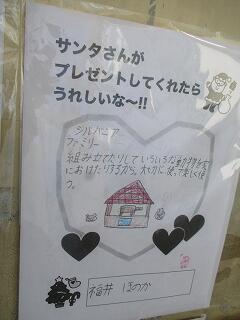 サンタさんが
プレゼントしてくれたら
うれしいな〜!!
シルバニア
ファミリー
組み立てたりしていろいろな動物を家
におけたりするから。大切に使って楽しく使
う。
福井 ほのか